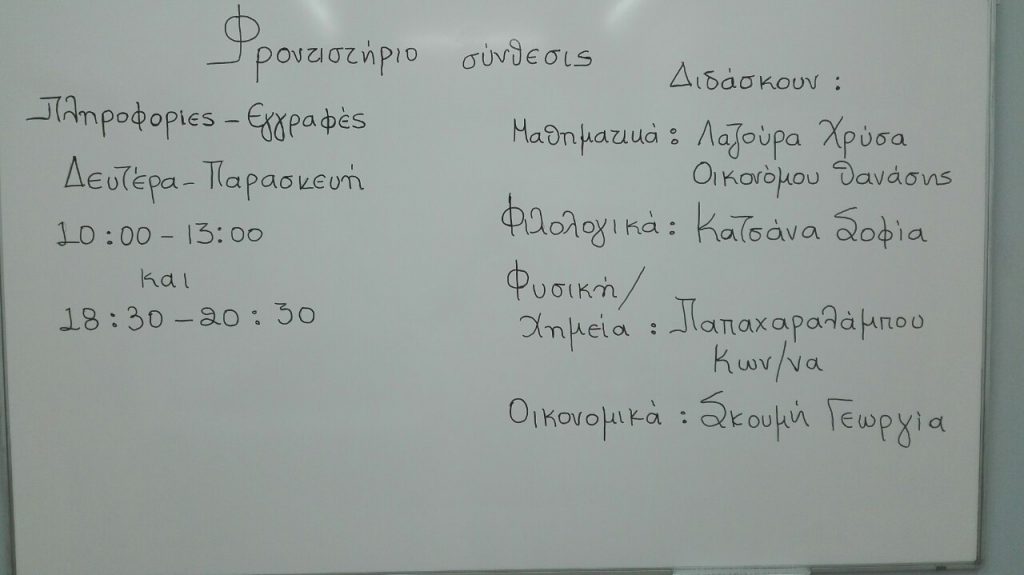 Φροντιστήριο σύνθεσις
Πληροφορίες - Εγγραφές
Δευτέρα - Παρασκευή
10:00 - 13:00
και
18:30 - 20:30
Διδάσκουν :
Μαθηματικά : Λαζούρα Χρύσα
Οικονόμου Θανάσης
Φιλολογικά : Κατσάνα Σοφία
Φυσική/
Χημεία : Παπαχαραλάμπου
Κων/να
Οικονομικά : Σκουμή Γεωργία